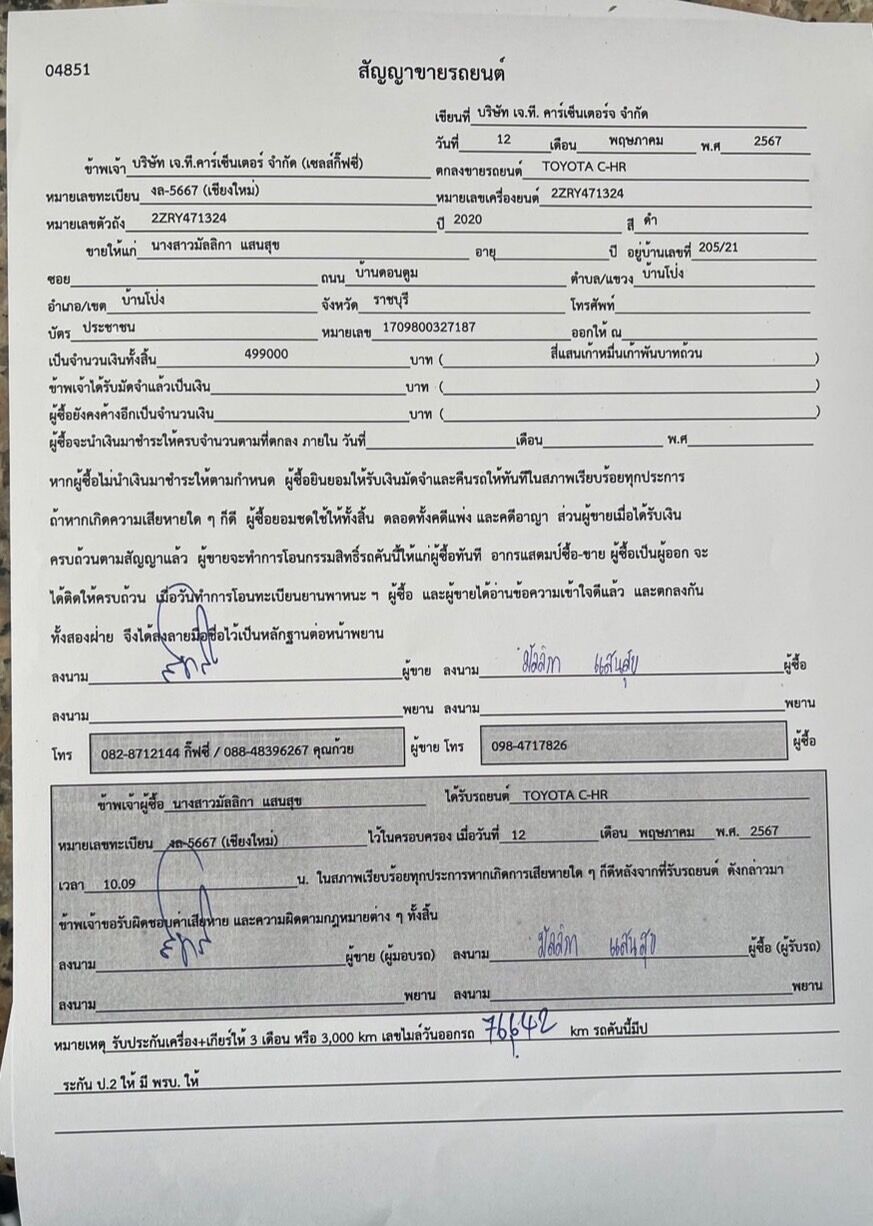 04851
สัญญาขายรถยนต์
เขียนที่ บริษัท เจ.ที. คาร์เซ็นเตอร์จ จำกัด
วันที่ 12 เดือน พฤษภาคม พ.ศ 2567
ข้าพเจ้า บริษัท เจ.ที.คาร์เซ็นเตอร์ จำกัด (เซลล์กิ๊ฟซี่) ตกลงขายรถยนต์ TOYOTA C-HR
หมายเลขทะเบียน งล-5667 (เชียงใหม่) หมายเลขเครื่องยนต์ 2ZRY471324
หมายเลขตัวถัง 2ZRY471324 ปี 2020 สี ดำ
ขายให้แก่ นางสาวมัลลิกา แสนสุข อายุ ปี อยู่บ้านเลขที่ 205/21
ซอย ถนน บ้านดอนตูม ตำบล/แขวง บ้านโป่ง
อำเภอ/เขต บ้านโป่ง จังหวัด ราชบุรี โทรศัพท์
บัตร ประชาชน หมายเลข 1709800327187 ออกให้ ณ
เป็นจำนวนเงินทั้งสิ้น 499000 บาท ( สี่แสนเก้าหมื่นเก้าพันบาทถ้วน )
ข้าพเจ้าได้รับมัดจำแล้วเป็นเงิน บาท ( )
ผู้ซื้อยังคงค้างอีกเป็นจำนวนเงิน บาท ( )
ผู้ซื้อจะนำเงินมาชำระให้ครบจำนวนตามที่ตกลง ภายใน วันที่ เดือน พ.ศ
หากผู้ซื้อไม่นำเงินมาชำระให้ตามกำหนด ผู้ซื้อยินยอมให้รับเงินมัดจำและคืนรถให้ทันทีในสภาพเรียบร้อยทุกประการ
ถ้าหากเกิดความเสียหายใด ๆ ก็ดี ผู้ซื้อยอมชดใช้ให้ทั้งสิ้น ตลอดทั้งคดีแพ่ง และคดีอาญา ส่วนผู้ขายเมื่อได้รับเงิน
ครบถ้วนตามสัญญาแล้ว ผู้ขายจะทำการโอนกรรมสิทธิ์รถคันนี้ให้แก่ผู้ซื้อทันที อากรแสตมป์ซื้อ-ขาย ผู้ซื้อเป็นผู้ออก จะ
ได้ติดให้ครบถ้วน เมื่อวันทำการโอนทะเบียนยานพาหนะ ฯ ผู้ซื้อ และผู้ขายได้อ่านข้อความเข้าใจดีแล้ว และตกลงกัน
ทั้งสองฝ่าย จึงได้ลงลายมือชื่อไว้เป็นหลักฐานต่อหน้าพยาน
ลงนาม ผู้ขาย ลงนาม มัลลิกา แสนสุข ผู้ซื้อ
ลงนาม พยาน ลงนาม พยาน
โทร 082-8712144 กิ๊ฟซี่ / 088-48396267 คุณก้วย ผู้ขาย โทร 098-4717826 ผู้ซื้อ
ข้าพเจ้าผู้ซื้อ นางสาวมัลลิกา แสนสุข ได้รับรถยนต์ TOYOTA C-HR
หมายเลขทะเบียน งล-5667 (เชียงใหม่) ไว้ในครอบครอง เมื่อวันที่ 12 เดือน พฤษภาคม พ.ศ. 2567
เวลา 10.09 น. ในสภาพเรียบร้อยทุกประการหากเกิดการเสียหายใด ๆ ก็ดีหลังจากที่รับรถยนต์ ดังกล่าวมา
ข้าพเจ้าขอรับผิดชอบค่าเสียหาย และความผิดตามกฎหมายต่าง ๆ ทั้งสิ้น
ลงนาม ผู้ขาย (ผู้มอบรถ) ลงนาม มัลลิกา แสนสุข ผู้ซื้อ (ผู้รับรถ)
ลงนาม พยาน ลงนาม พยาน
หมายเหตุ รับประกันเครื่อง+เกียร์ให้ 3 เดือน หรือ 3,000 km เลขไมล์วันออกรถ 76642 km รถคันนี้มีป
ระกัน ป.2 ให้ มี พรบ. ให้